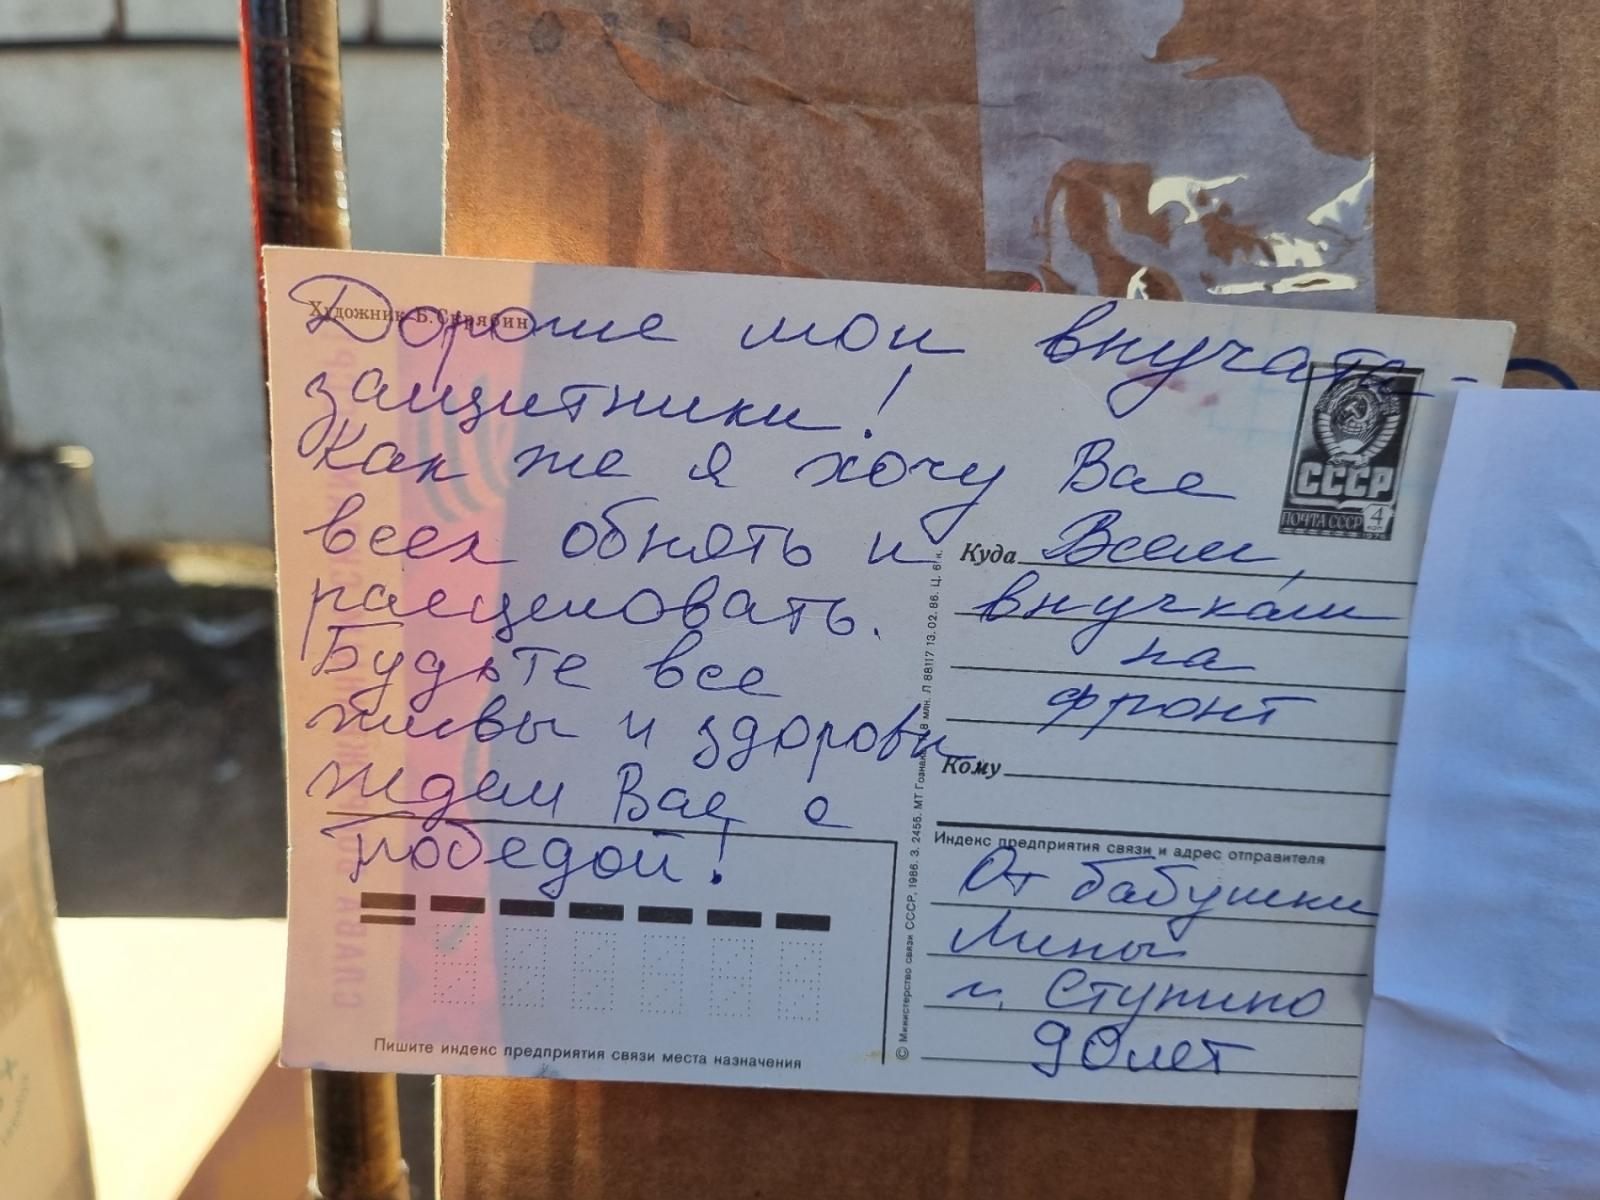 Художник Б. Скрябин
Дорогие мои внучата-
защитники!
Как же я хочу Вас
всех обнять и
расцеловать.
Будьте все
живы и здоровы
ждем Вас с
победой!
СССР
ПОЧТА СССР 4 коп
Куда Всем,
внучкам
на
фронт
Кому
Индекс предприятия связи и адрес отправителя
От бабушки
Лины
г. Ступино
90 лет
Пишите индекс предприятия связи места назначения
© Министерство связи СССР, 1986. З. 2455. МТ Гознака. 8 млн. Л 88117 13.02.86. Ц. 6 к.